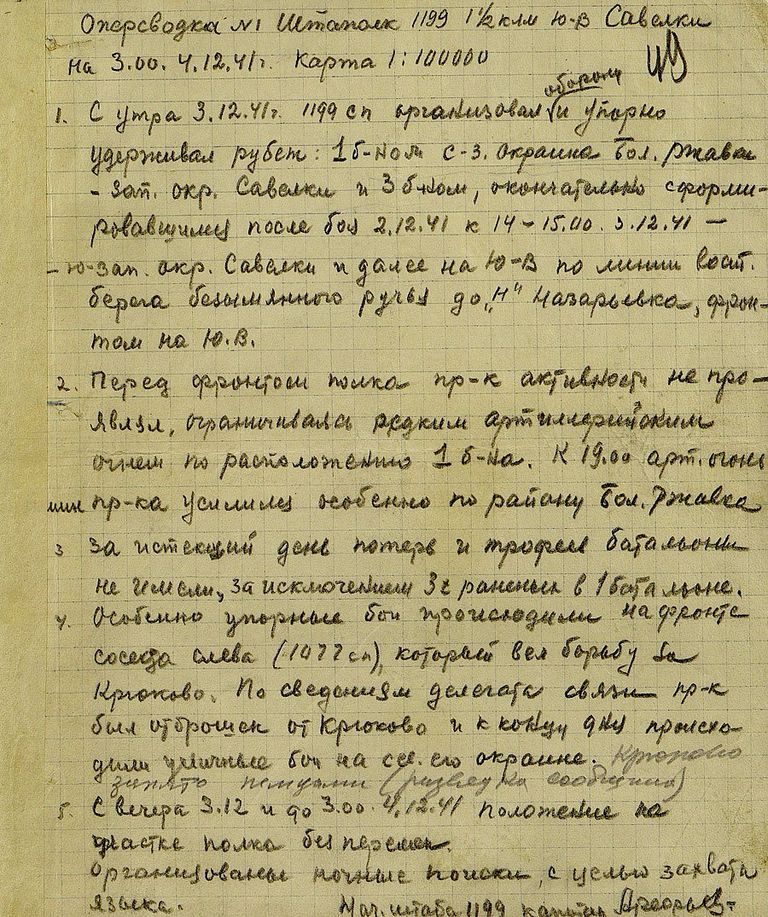 Оперсводка №1 Штаполк 1199 1 1/2 клм Ю-В Савелки
на 3.00. 4.12.41г. Карта 1:100000
49
оборону
1. С утра 3.12.41г. 1199 сп организовал и упорно
удерживал рубеж: 1 б-ном С-З. Окраина Бол. Ржавки
- Зап. окр. Савелки и 3 б-ном, окончательно сформи-
ровавшимся после боя 2.12.41 к 14-15.00. 3.12.41 —
- Ю-Зап. окр. Савелки и далее на Ю-В по линии вост.
берега безымянного ручья до „Н" Назарьевка, фрон-
том на Ю.В.
2. Перед фронтом полка пр-к активности не про-
являл, ограничиваясь редким артиллерийским
огнем по расположению 1 б-на. К 19.00 арт. огонь
мин пр-ка усилился особенно по району Бол. Ржавка
3 За истекший день потерь и трофеев батальоны
не имели, за исключением 3х раненых в 1 батальоне.
4. Особенно упорные бои происходили на фронте
соседа слева (1077 сп), который вел борьбу за
Крюково. По сведениям делегата связи пр-к
был отброшен от Крюково и к концу дня происхо-
дили уличные бои на сев. его окраине. Крюково
занято немцами (разведка сообщила)
5. С вечера 3.12 и до 3.00. 4.12.41 положение на
участке полка без перемен.
Организованы ночные поиски, с целью захвата
языка.
Нач. штаба 1199 капитан